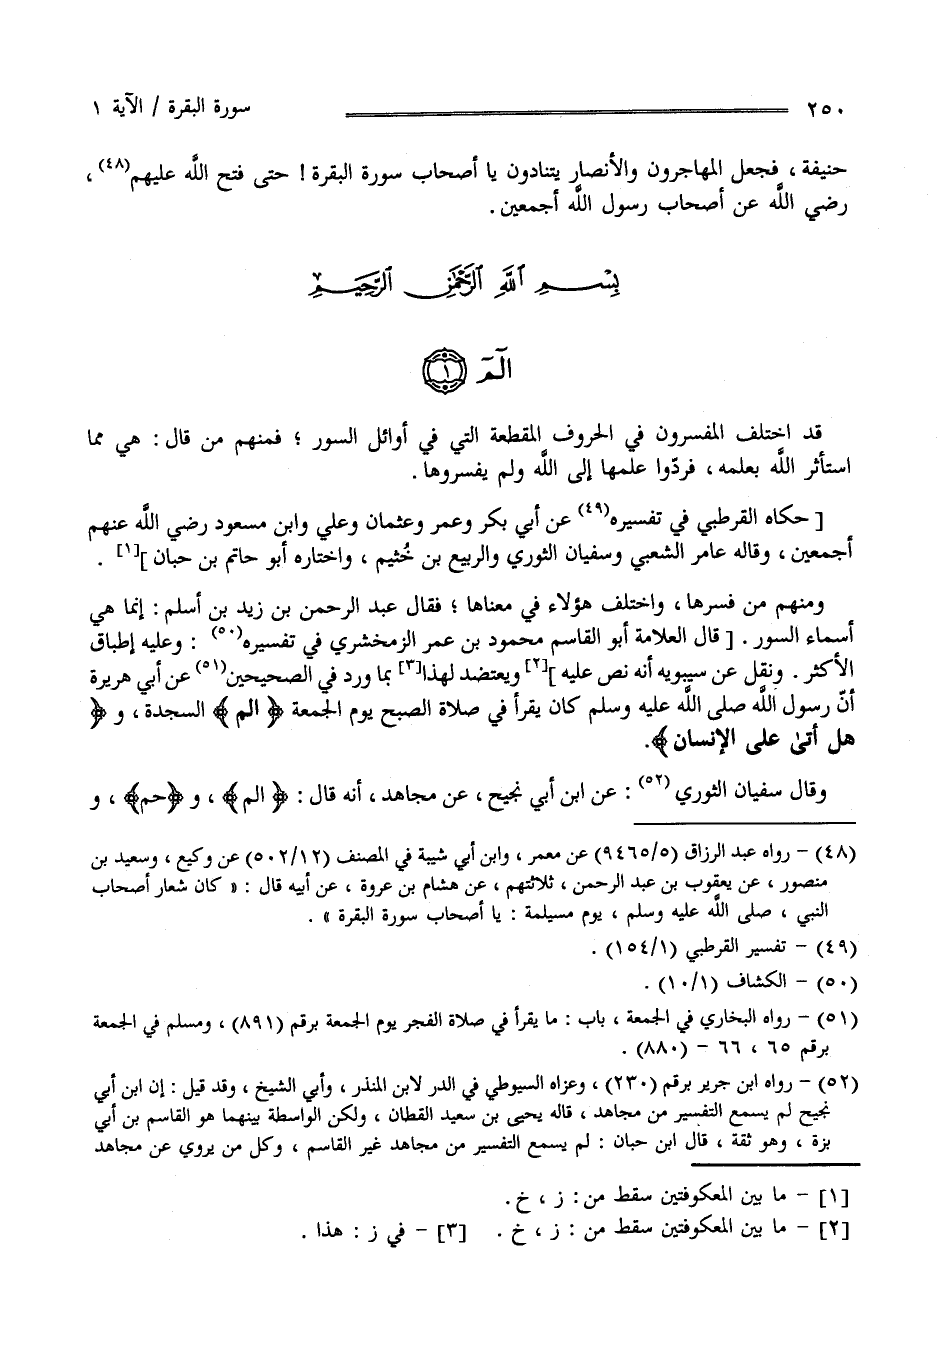 ٢٥٠ سورة البقرة / الآية ١
حنيفة ، فجعل المهاجرون والأنصار يتنادون يا أصحاب سورة البقرة ! حتى فتح اللَّه عليهم(٤٨) ،
رضي اللَّه عن أصحاب رسول اللَّه أجمعين .
بِسْمِ اللَّهِ الرَّحْمَٰنِ الرَّحِيمِ
الٓمٓ ١
قد اختلف المفسرون في الحروف المقطعة التي في أوائل السور ؛ فمنهم من قال : هي مما
استأثر اللَّه بعلمه ، فردّوا علمها إلى اللَّه ولم يفسروها .
[ حكاه القرطبي في تفسيره(٤٩) عن أبي بكر وعمر وعثمان وعلي وابن مسعود رضي اللَّه عنهم
أجمعين ، وقاله عامر الشعبي وسفيان الثوري والربيع بن خُثيم ، واختاره أبو حاتم بن حبان ][١] .
ومنهم من فسرها ، واختلف هؤلاء في معناها ؛ فقال عبد الرحمن بن زيد بن أسلم : إنما هي
أسماء السور . [ قال العلامة أبو القاسم محمود بن عمر الزمخشري في تفسيره(٥٠) : وعليه إطباق
الأكثر . ونقل عن سيبويه أنه نص عليه ][٢] ويعتضد لهذا[٣] بما ورد في الصحيحين(٥١) عن أبي هريرة
أنّ رسول اللَّه صلى اللَّه عليه وسلم كان يقرأ في صلاة الصبح يوم الجمعة ﴿ الم ﴾ السجدة ، و ﴿
هل أتىٰ على الإنسان ﴾.
وقال سفيان الثوري(٥٢) : عن ابن أبي نجيح ، عن مجاهد ، أنه قال : ﴿ الم ﴾ ، و ﴿حم﴾ ، و
(٤٨) - رواه عبد الرزاق (٩٤٦٥/٥) عن معمر ، وابن أبي شيبة في المصنف (٥٠٢/١٢) عن وكيع ، وسعيد بن
منصور ، عن يعقوب بن عبد الرحمن ، ثلاثتهم ، عن هشام بن عروة ، عن أبيه قال : « كان شعار أصحاب
النبي ، صلى اللَّه عليه وسلم ، يوم مسيلمة : يا أصحاب سورة البقرة » .
(٤٩) - تفسير القرطبي (١٥٤/١) .
(٥٠) - الكشاف (١٠/١) .
(٥١) - رواه البخاري في الجمعة ، باب : ما يقرأ في صلاة الفجر يوم الجمعة برقم (٨٩١) ، ومسلم في الجمعة
برقم ٦٥ ، ٦٦ - (٨٨٠) .
(٥٢) - رواه ابن جرير برقم (٢٣٠) ، وعزاه السيوطي في الدر لابن المنذر ، وأبي الشيخ ، وقد قيل : إن ابن أبي
نجيح لم يسمع التفسير من مجاهد ، قاله يحيى بن سعيد القطان ، ولكن الواسطة بينهما هو القاسم بن أبي
بزة ، وهو ثقة ، قال ابن حبان : لم يسمع التفسير من مجاهد غير القاسم ، وكل من يروي عن مجاهد
[١] - ما بين المعكوفتين سقط من : ز ، خ .
[٢] - ما بين المعكوفتين سقط من : ز ، خ . [٣] - في ز : هذا .